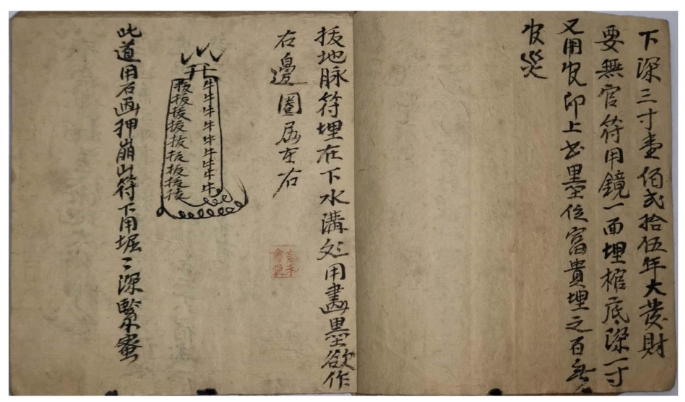 下深三寸壹佰弍拾伍年大發財
要無官符用鏡一面埋棺底深一寸
又用印上書墨位富貴埋之百無
災
拔地脉符埋在下水溝处用畫墨欲作
右邊圈左右
牛牛牛牛牛牛牛牛
拔拔拔拔拔拔拔拔
此道用石画押崩山符下用堀二深緊蜜